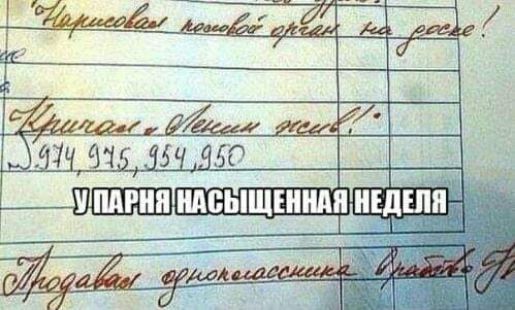 "Нарисовал половой орган на доске!
Кричал „Ленин жив!"
974, 975, 954, 950
У ПАРНЯ НАСЫЩЕННАЯ НЕДЕЛЯ
Продавал одноклассника в рабство